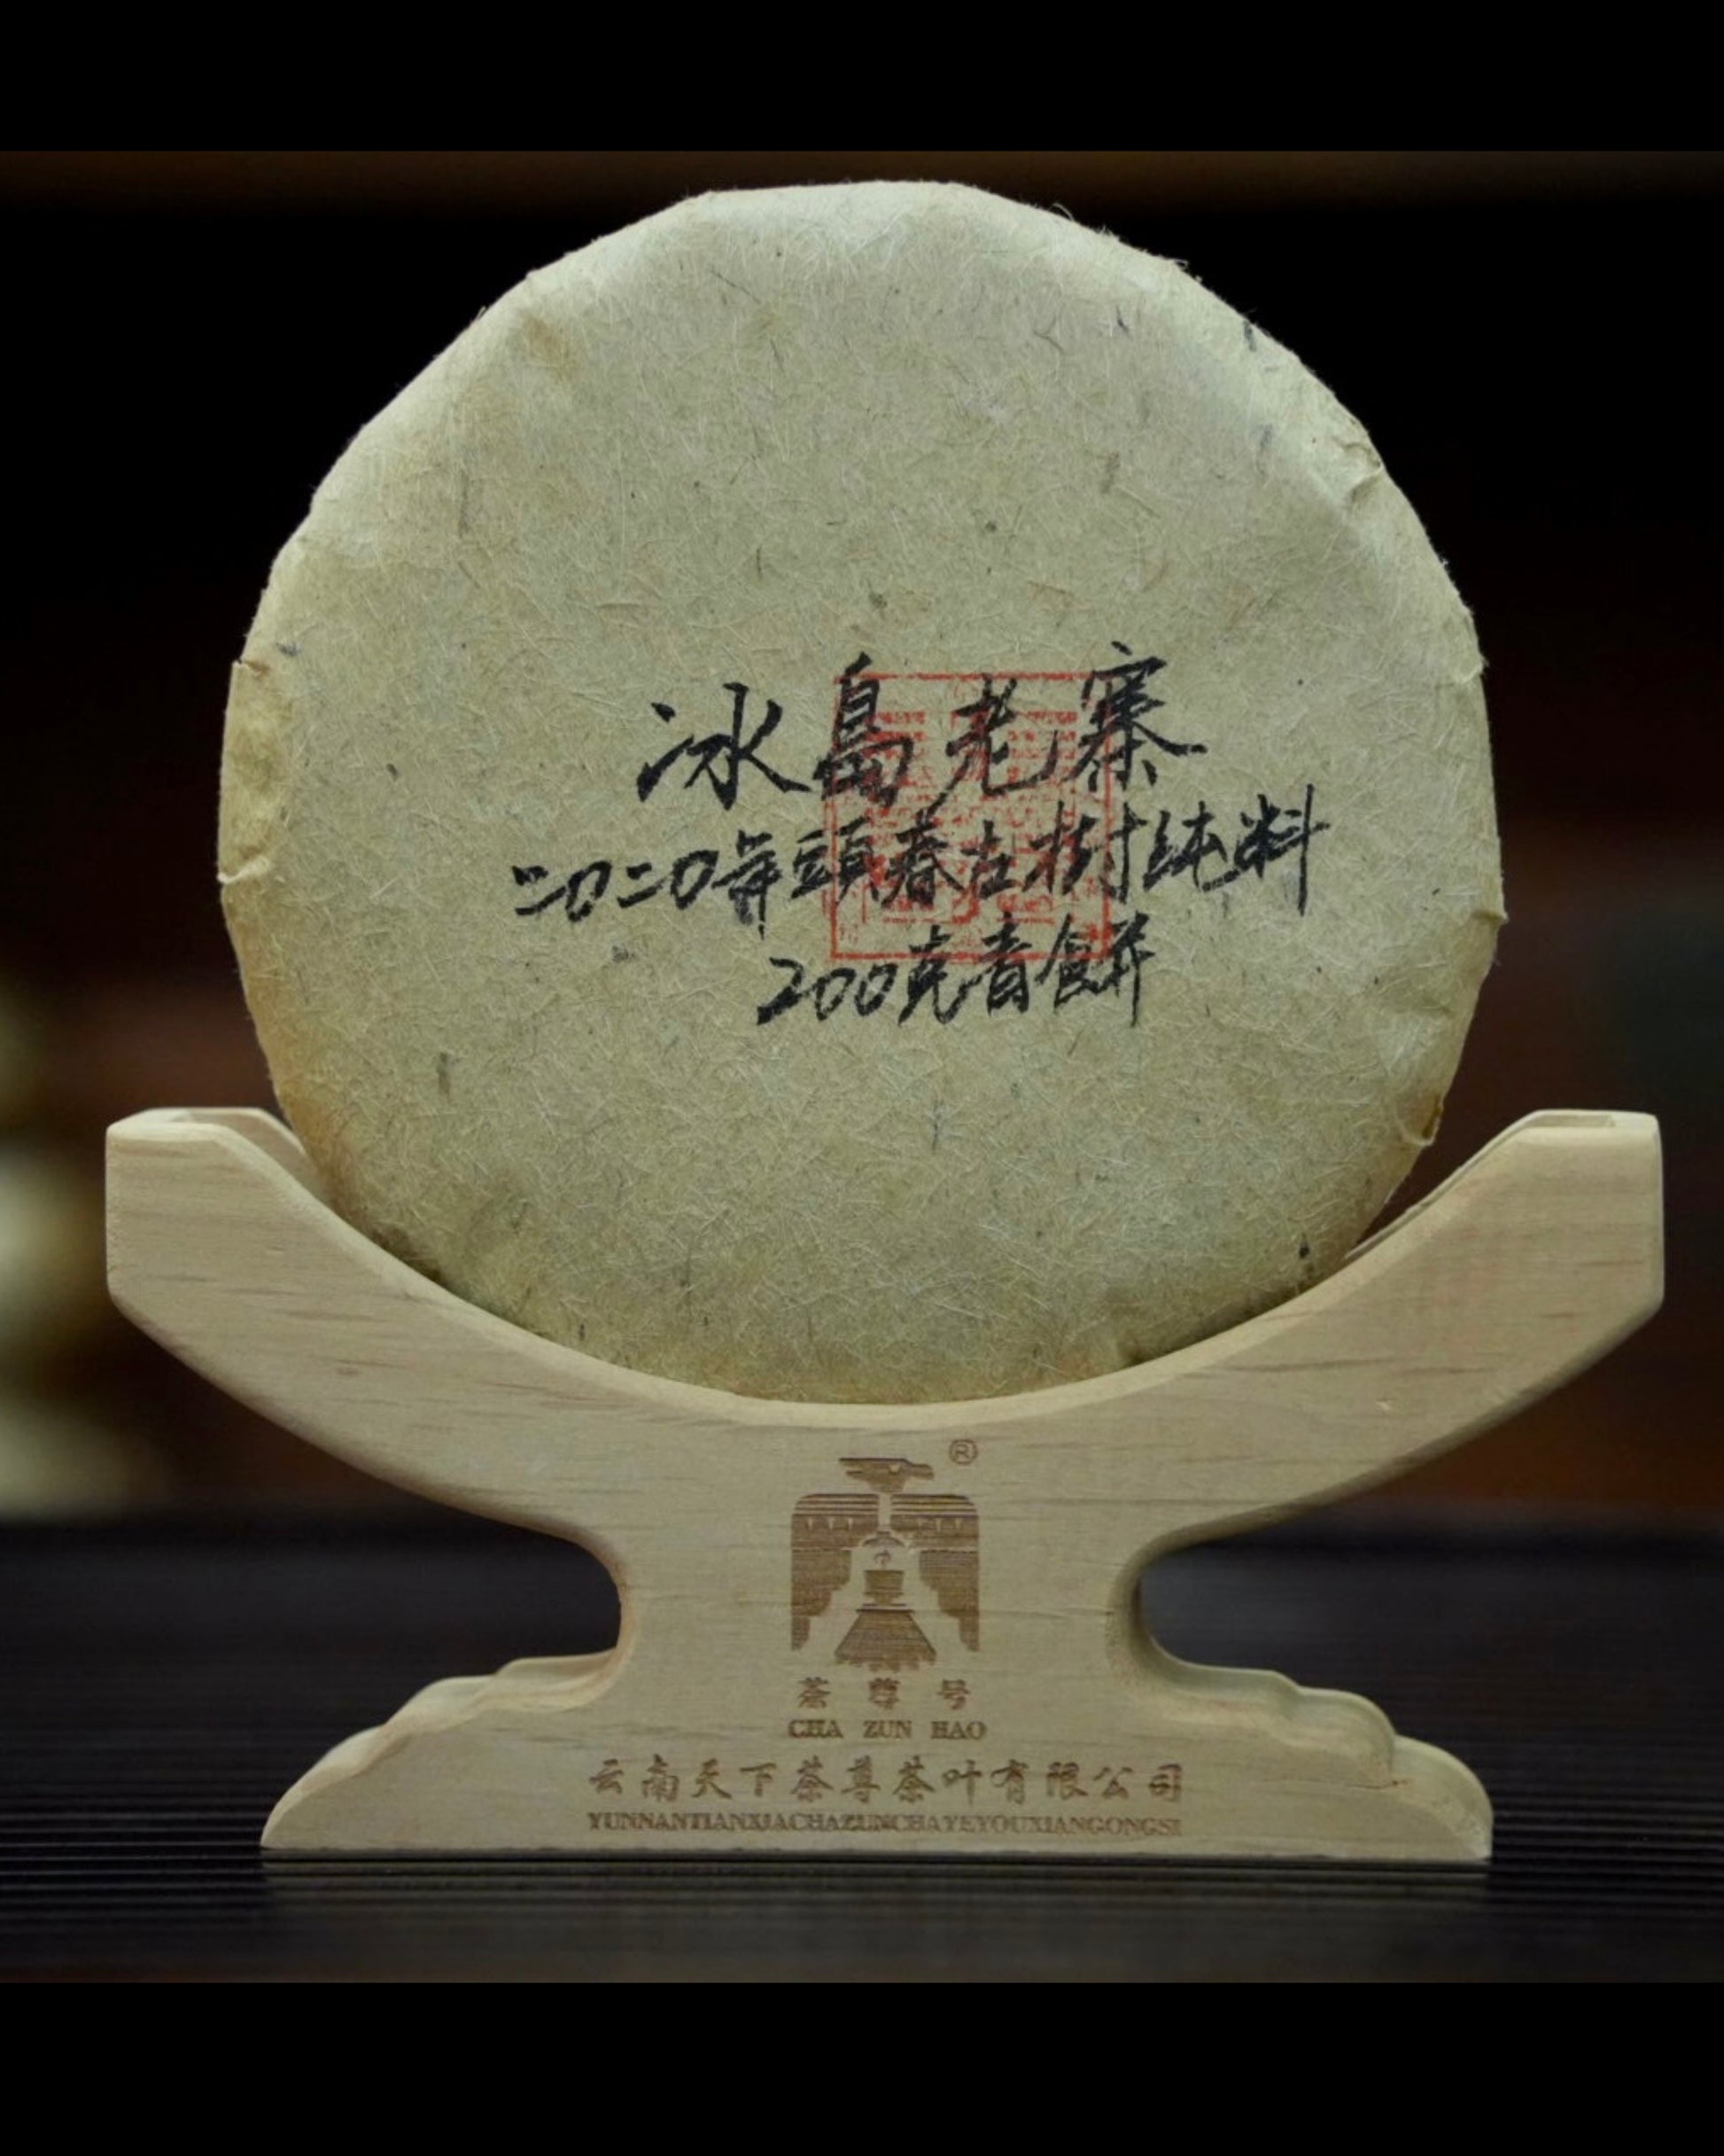 冰島老寨
二0二0年頭春古樹纯料
200克青餅
®
茶尊号
CHA ZUN HAO
云南天下茶尊茶叶有限公司
YUNNANTIANXIACHAZUNCHAYEYOUXIANGONGSI